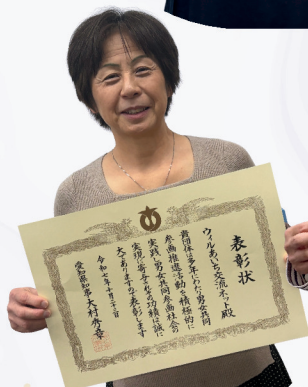 表彰状
ウィルあいち交流ネット殿
貴団体は多年にわたり男女共同
参画推進活動を積極的に
実践し男女共同参画社会の
実現に寄与されその功績は誠に
大でありますので表彰します
令和七年
愛知県知事 大村秀章